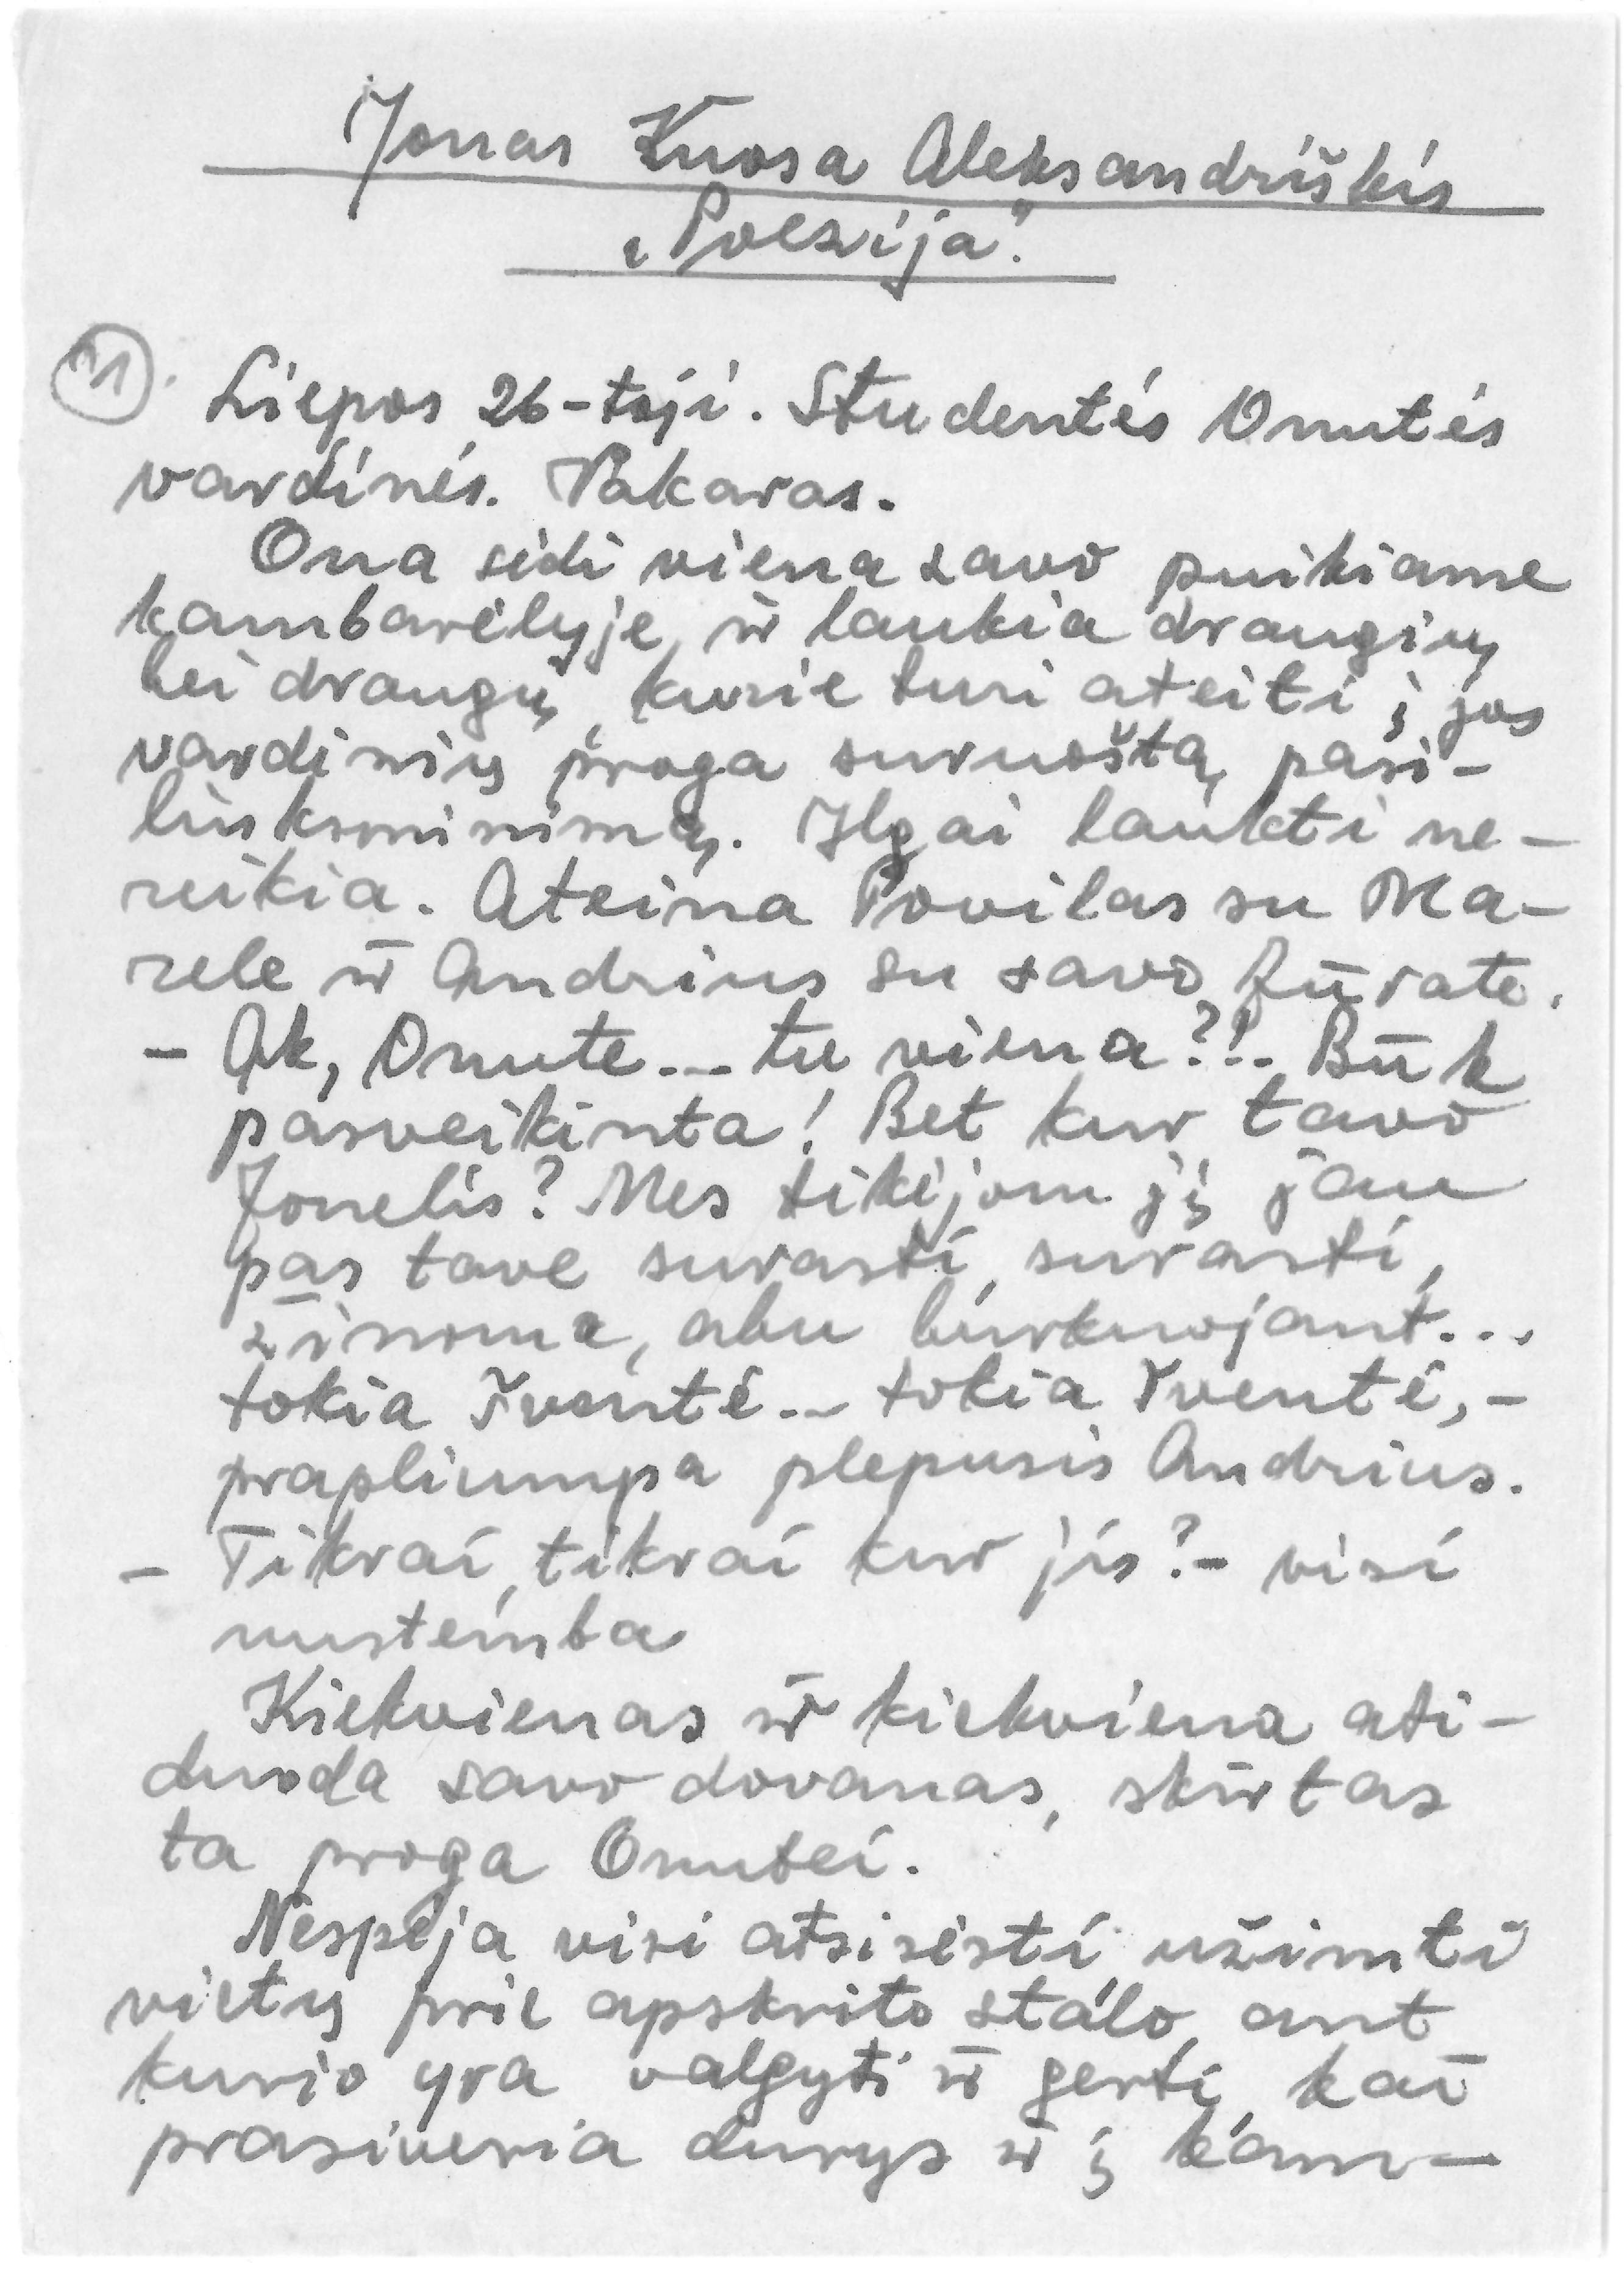 Jonas Kuosa Aleksandriškis
„Poezija".
1. Liepos 26-toji. Studentės Onutės
vardinės. Vakaras.
Ona sėdi viena savo puikiame
kambarėlyje ir laukia draugių
bei draugų, kurie turi ateiti į jos
vardinių proga suruoštą pasi-
linksminimą. Ilgai laukti ne-
reikia. Ateina Povilas su Ma-
rele ir Andrius su savo Jūrate.
- Ak, Onute... tu viena?!. Būk
pasveikinta! Bet kur tavo
Jonelis? Mes tikėjom jį jau
pas tave surasti, surasti,
žinoma, abu burkuojant...
tokia šventė... tokia šventė, -
prapliumpa plepusis Andrius.
- Tikrai, tikrai kur jis? - visi
nustemba
Kiekvienas ir kiekviena ati-
duoda savo dovanas, skirtas
ta proga Onutei.
Nespėja visi atsisėsti užimti
vietų prie apskrito stalo, ant
kurio yra valgyti ir gerti, kai
prasiveria durys ir į kam-